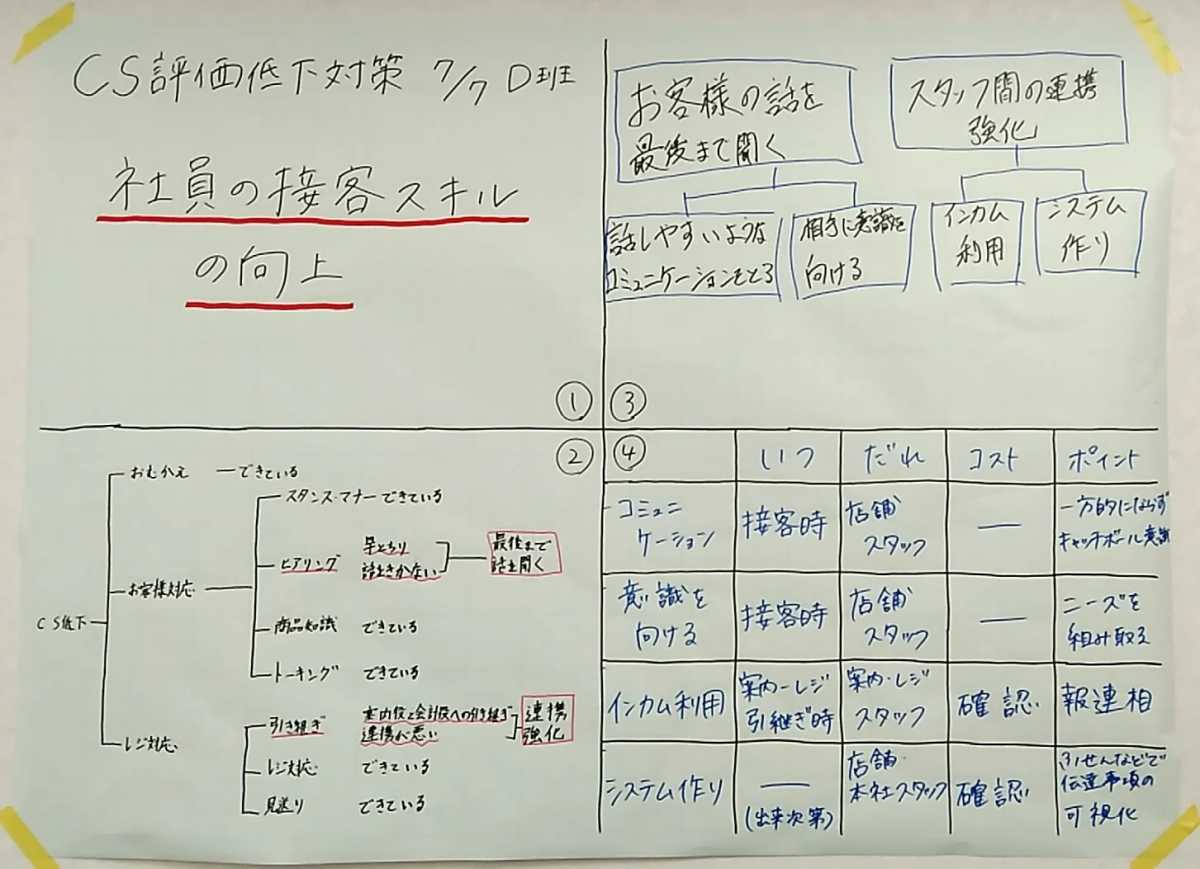 CS評価低下対策 7/7 D班
社員の接客スキル
の向上
①
②
CS低下
おむかえ できている
お客様対応
スタンス・マナー できている
ヒアリング 早とちり
話をきかない
最後まで
話を聞く
商品知識 できている
トーキング できている
レジ対応
引き継ぎ 案内役と会計役への引き継ぎ
連携が悪い
連携
強化
レジ対応 できている
見送り できている
③
お客様の話を
最後まで聞く
話しやすいような
コミュニケーションをとる
相手に意識を
向ける
スタッフ間の連携
強化
インカム
利用
システム
作り
④
いつ だれ コスト ポイント
コミュニ
ケーション
接客時
店舗
スタッフ
—
一方的にならず
キャッチボール意識
意識を
向ける
接客時
店舗
スタッフ
—
ニーズを
組み取る
インカム利用
案内-レジ
引継ぎ時
案内・レジ
スタッフ
確認
報連相
システム作り
—
(出来次第)
店舗・
本社スタッフ
確認
ふせんなどで
伝達事項の
可視化